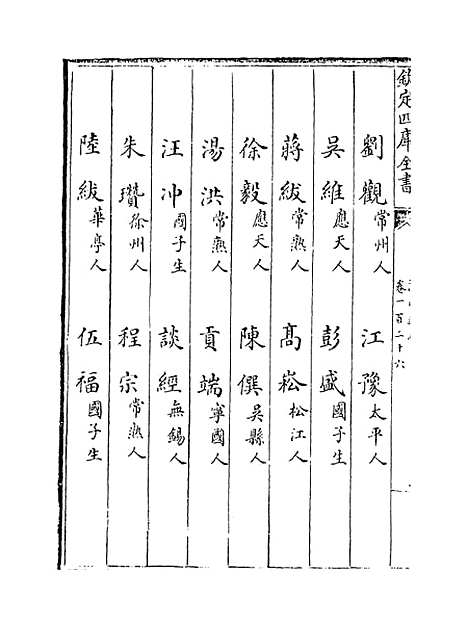 欽定四庫全書
卷一百二十六
劉觀常州人 江豫太平人
吳維應天人 彭盛國子生
蔣紱常熟人 高崧松江人
徐毅應天人 陳僎吳縣人
湯洪常熟人 貢端寧國人
汪冲國子生 談經無錫人
朱瓚徐州人 程宗常熟人
陸紱華亭人 伍福國子生